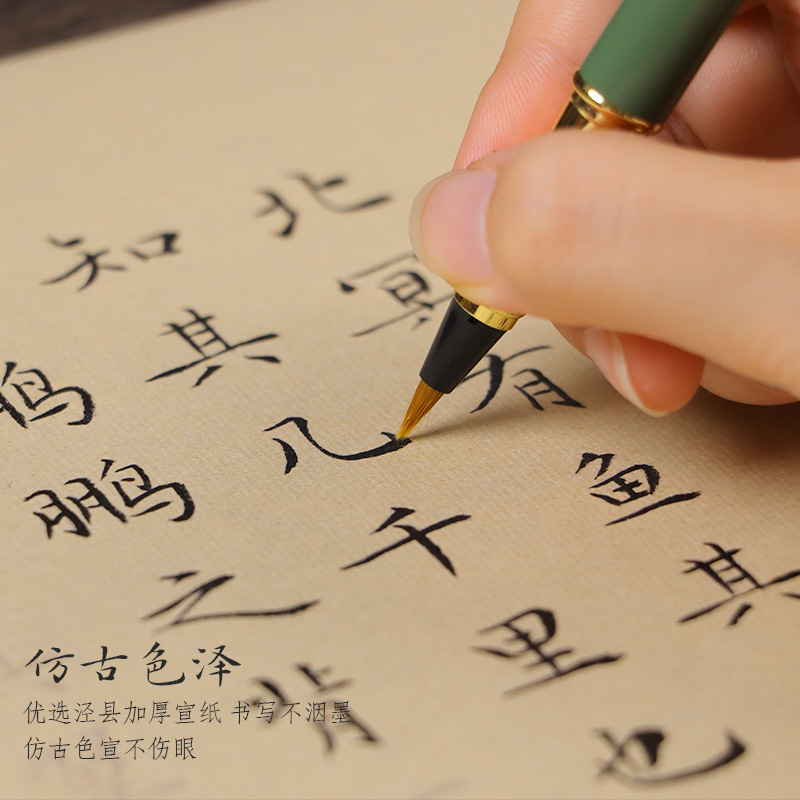 北冥有鱼其
知其几千里也
鹏鹏之背
仿古色泽
优选泾县加厚宣纸 书写不洇墨
仿古色宣不伤眼